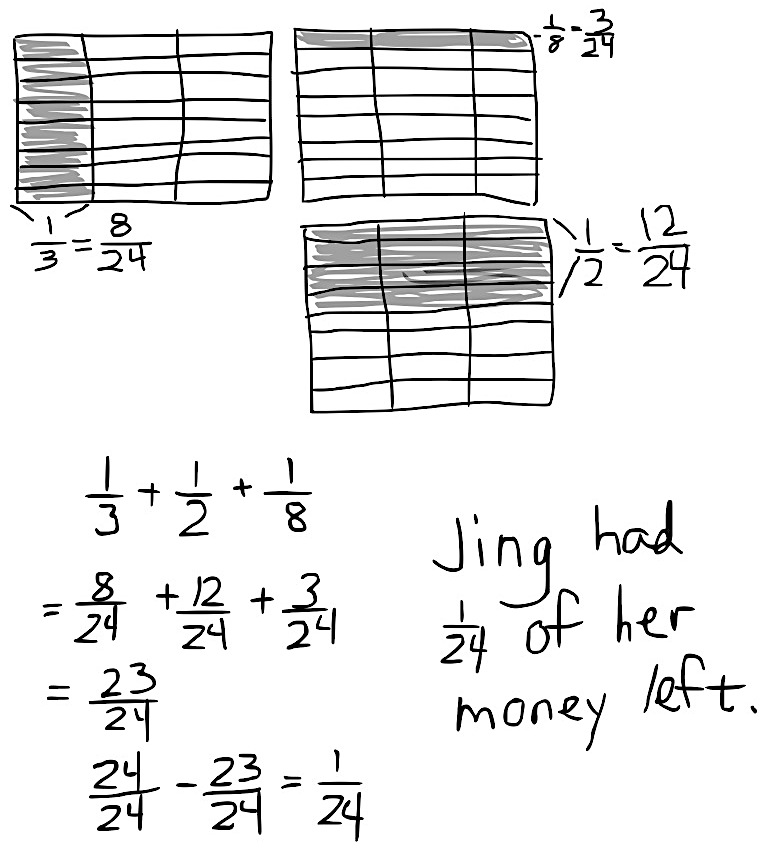 - 1/8 = 3/24
1/3 = 8/24
1/2 = 12/24
1/3 + 1/2 + 1/8
= 8/24 + 12/24 + 3/24
= 23/24
24/24 - 23/24 = 1/24
Jing had
1/24 of her
money left.